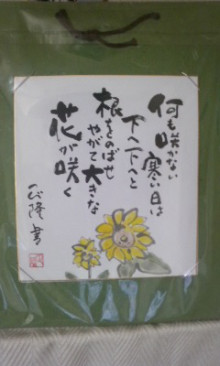 何も咲かない
寒い日は
下へ下へと
根をのばせ
やがて大きな
花が咲く
隆書